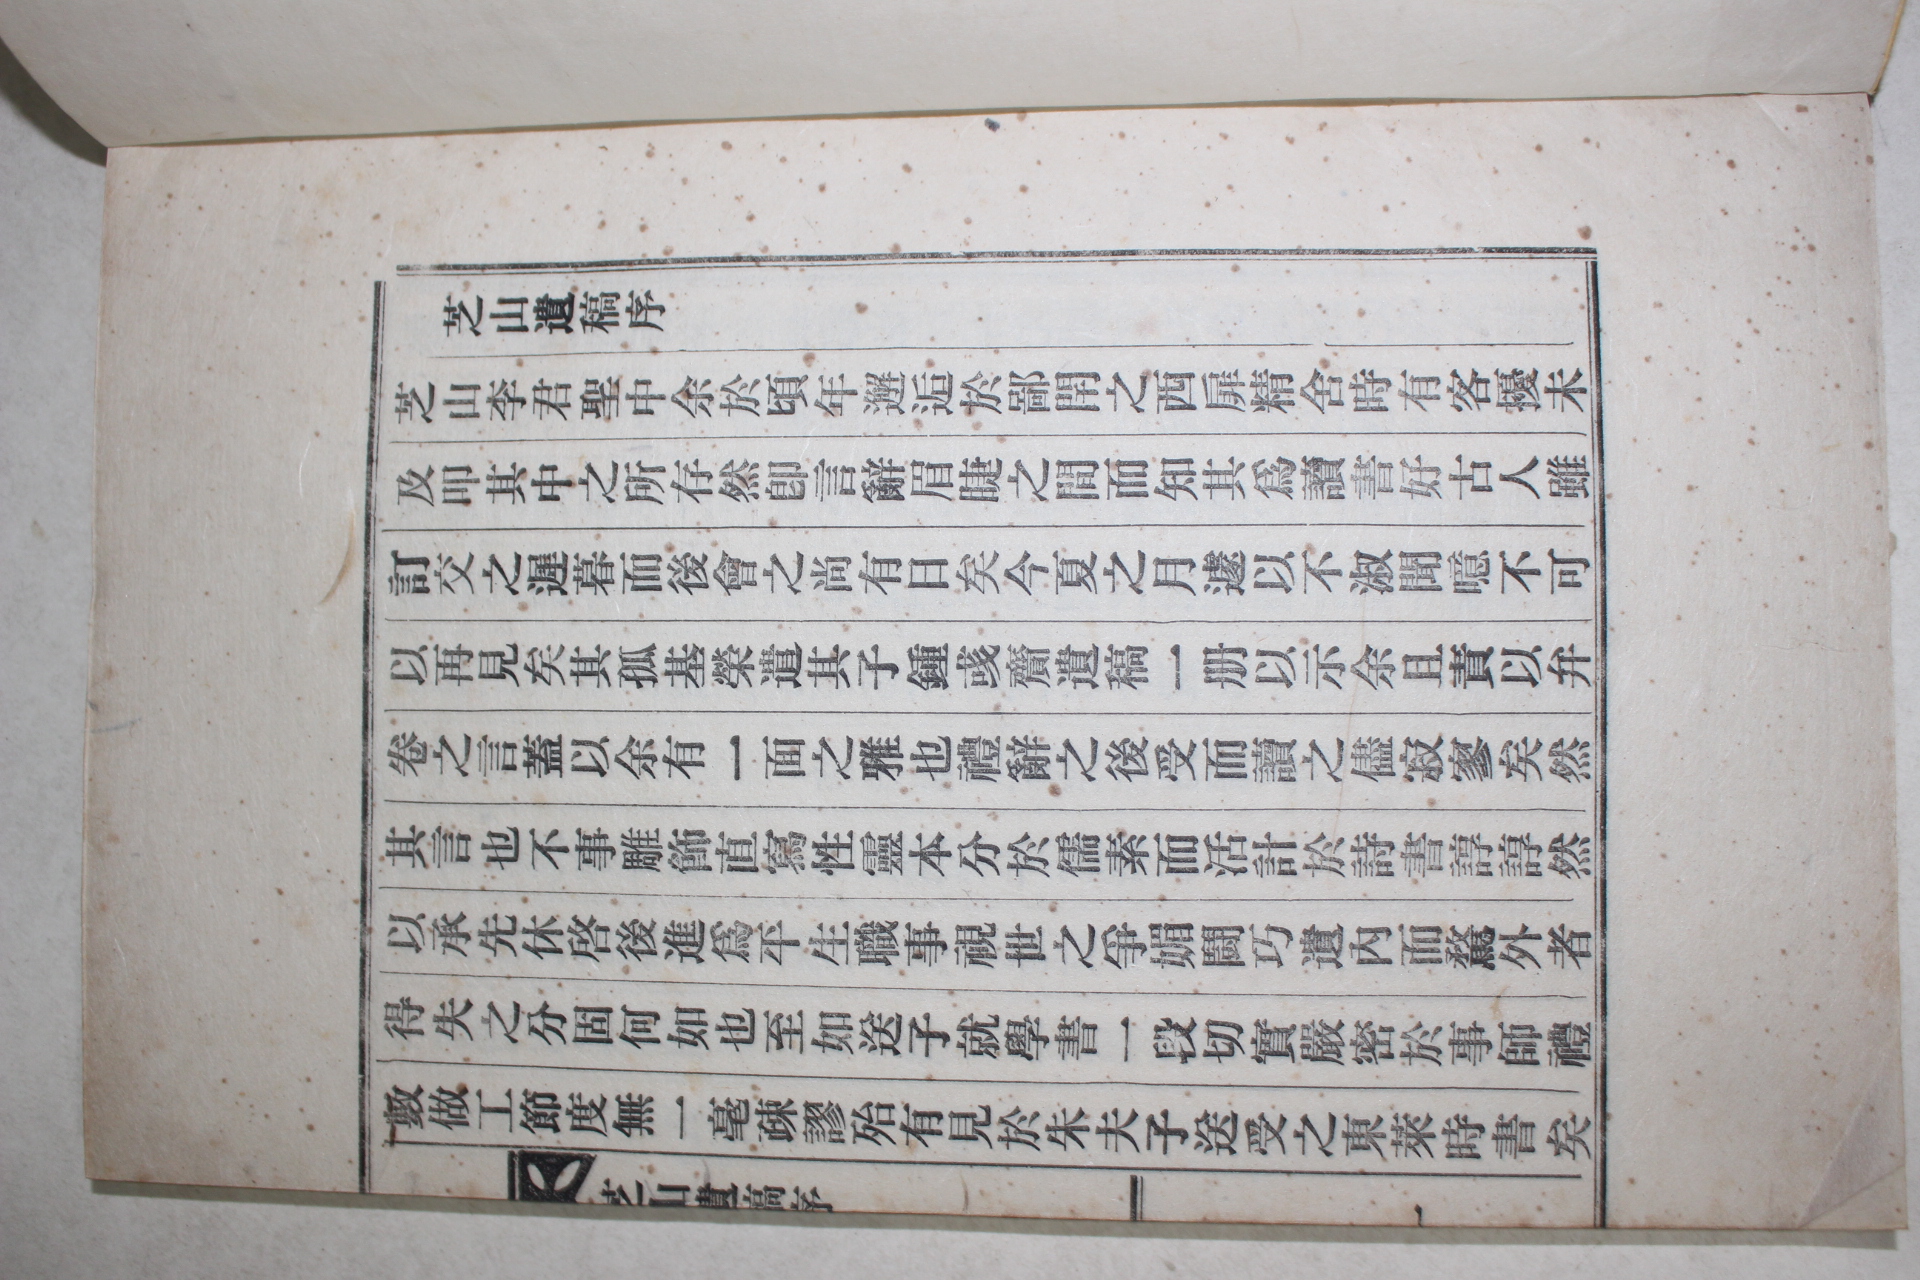 芝山遺稿序
芝山李君聖中余於頃年邂逅於鄙閈之西屛精舍時有客擾未
及叩其中之所存然卽言辭眉睫之間而知其爲讀書好古人雖
訂交之遲暮而後會之尚有日矣今夏之月遽以不淑聞噫不可
以再見矣其孤基榮遣其子鍾彧齎遺稿一册以示余且責以弁
卷之言蓋以余有一面之雅也禮辭之後受而讀之儘寂寥矣然
其言也不事雕飾直寫性靈本分於儒素而活計於詩書諄諄然
以承先休啓後進爲平生職事視世之爭媚鬪巧遺內而騖外者
得失之分固何如也至如送子就學書一段切實嚴密於事師禮
數做工節度無一毫疎謬殆有見於朱夫子送受之東萊時書矣
芝山遺稿序
一